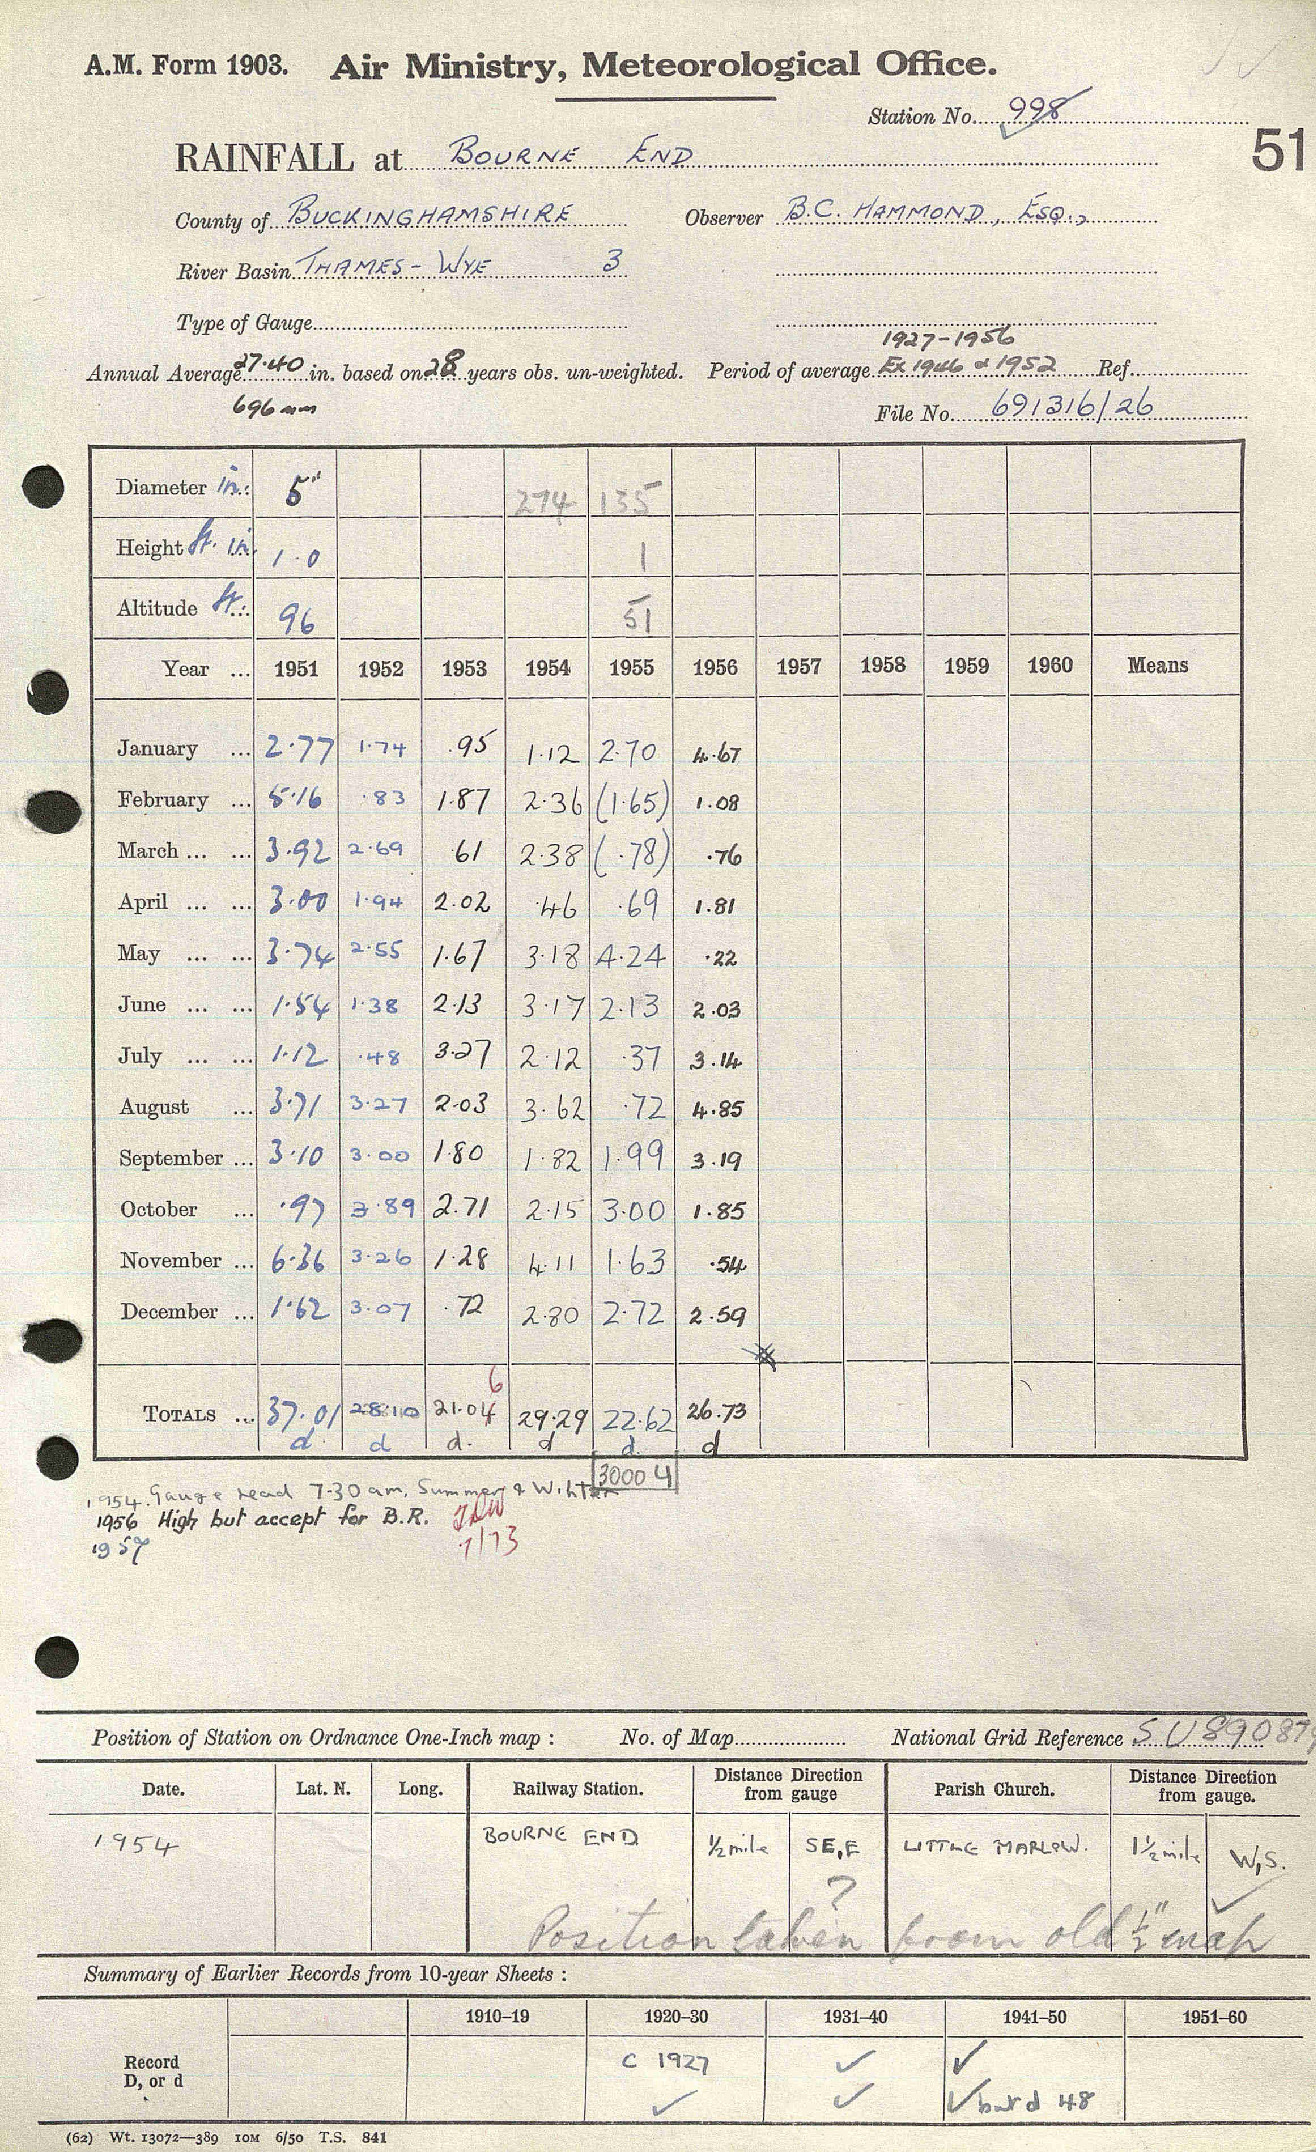 A.M. Form 1903. Air Ministry, Meteorological Office.
Station No. 998
51
RAINFALL at BOURNE END
County of BUCKINGHAMSHIRE Observer B.C. HAMMOND, ESQ.,
River Basin THAMES - WYE 3
Type of Gauge
1927-1956
Annual Average 27.40 in. based on 28 years obs. un-weighted. Period of average Ex 1946 & 1952 Ref.
696 mm
File No. 691316/26
Diameter in. 5" 274 135
Height ft. in. 1.0 1
Altitude ft. 96 51
Year ... 1951 1952 1953 1954 1955 1956 1957 1958 1959 1960 Means
January ... 2.77 1.74 .95 1.12 2.70 4.67
February ... 5.16 .83 1.87 2.36 (1.65) 1.08
March ... ... 3.92 2.69 .61 2.38 (.78) .76
April ... ... 3.00 1.94 2.02 .46 .69 1.81
May ... ... 3.74 2.55 1.67 3.18 4.24 .22
June ... ... 1.54 1.38 2.13 3.17 2.13 2.03
July ... ... 1.12 .48 3.27 2.12 .37 3.14
August ... 3.71 3.27 2.03 3.62 .72 4.85
September ... 3.10 3.00 1.80 1.82 1.99 3.19
October ... .97 3.89 2.71 2.15 3.00 1.85
November ... 6.36 3.26 1.28 4.11 1.63 .54
December ... 1.62 3.07 .72 2.80 2.72 2.59
6
TOTALS ... 37.01 28.10 21.04 29.29 22.62 26.73
d. d d. d d. d
30004
1954. Gauge read 7.30 am, Summer & Winter
1956 High but accept for B.R.
1957 7/73
Position of Station on Ordnance One-Inch map : No. of Map National Grid Reference SU890879
Date. Lat. N. Long. Railway Station. Distance from Direction gauge Parish Church. Distance from Direction gauge.
1954 BOURNE END ½ mile SE,E LITTLE MARLOW. 1½ mile W,S.
?
Position taken from old ½" map
Summary of Earlier Records from 10-year Sheets :
1910–19 1920–30 1931–40 1941–50 1951–60
Record C 1927 ✓ ✓
D, or d ✓ ✓ ✓ but d 48
(62) Wt. 13072—389 10M 6/50 T.S. 841